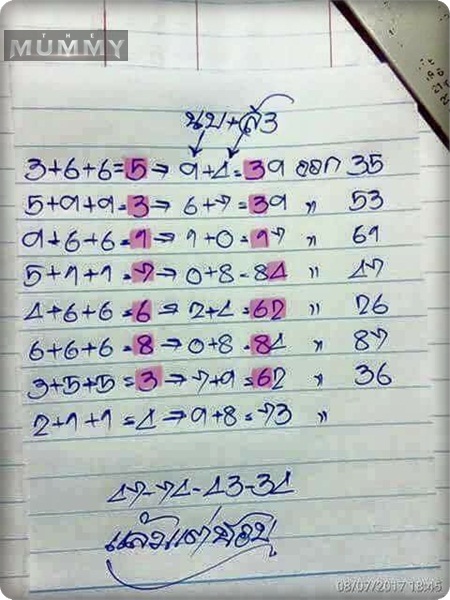 THE
MUMMY
3+6+6=5→ 9+4=39 ออก 35
5+9+9=3→ 6+7=39 " 53
9+6+6=1→ 1+0=17 " 61
5+1+1=7→ 0+8=84 " 47
4+6+6=6→ 2+4=62 " 26
6+6+6=8→ 0+8=84 " 87
3+5+5=3→ 7+9=62 " 36
2+1+1=4→ 9+8=73 "
47-74-43-34
แล้วแต่ชอบ
08/07/2017 18:45